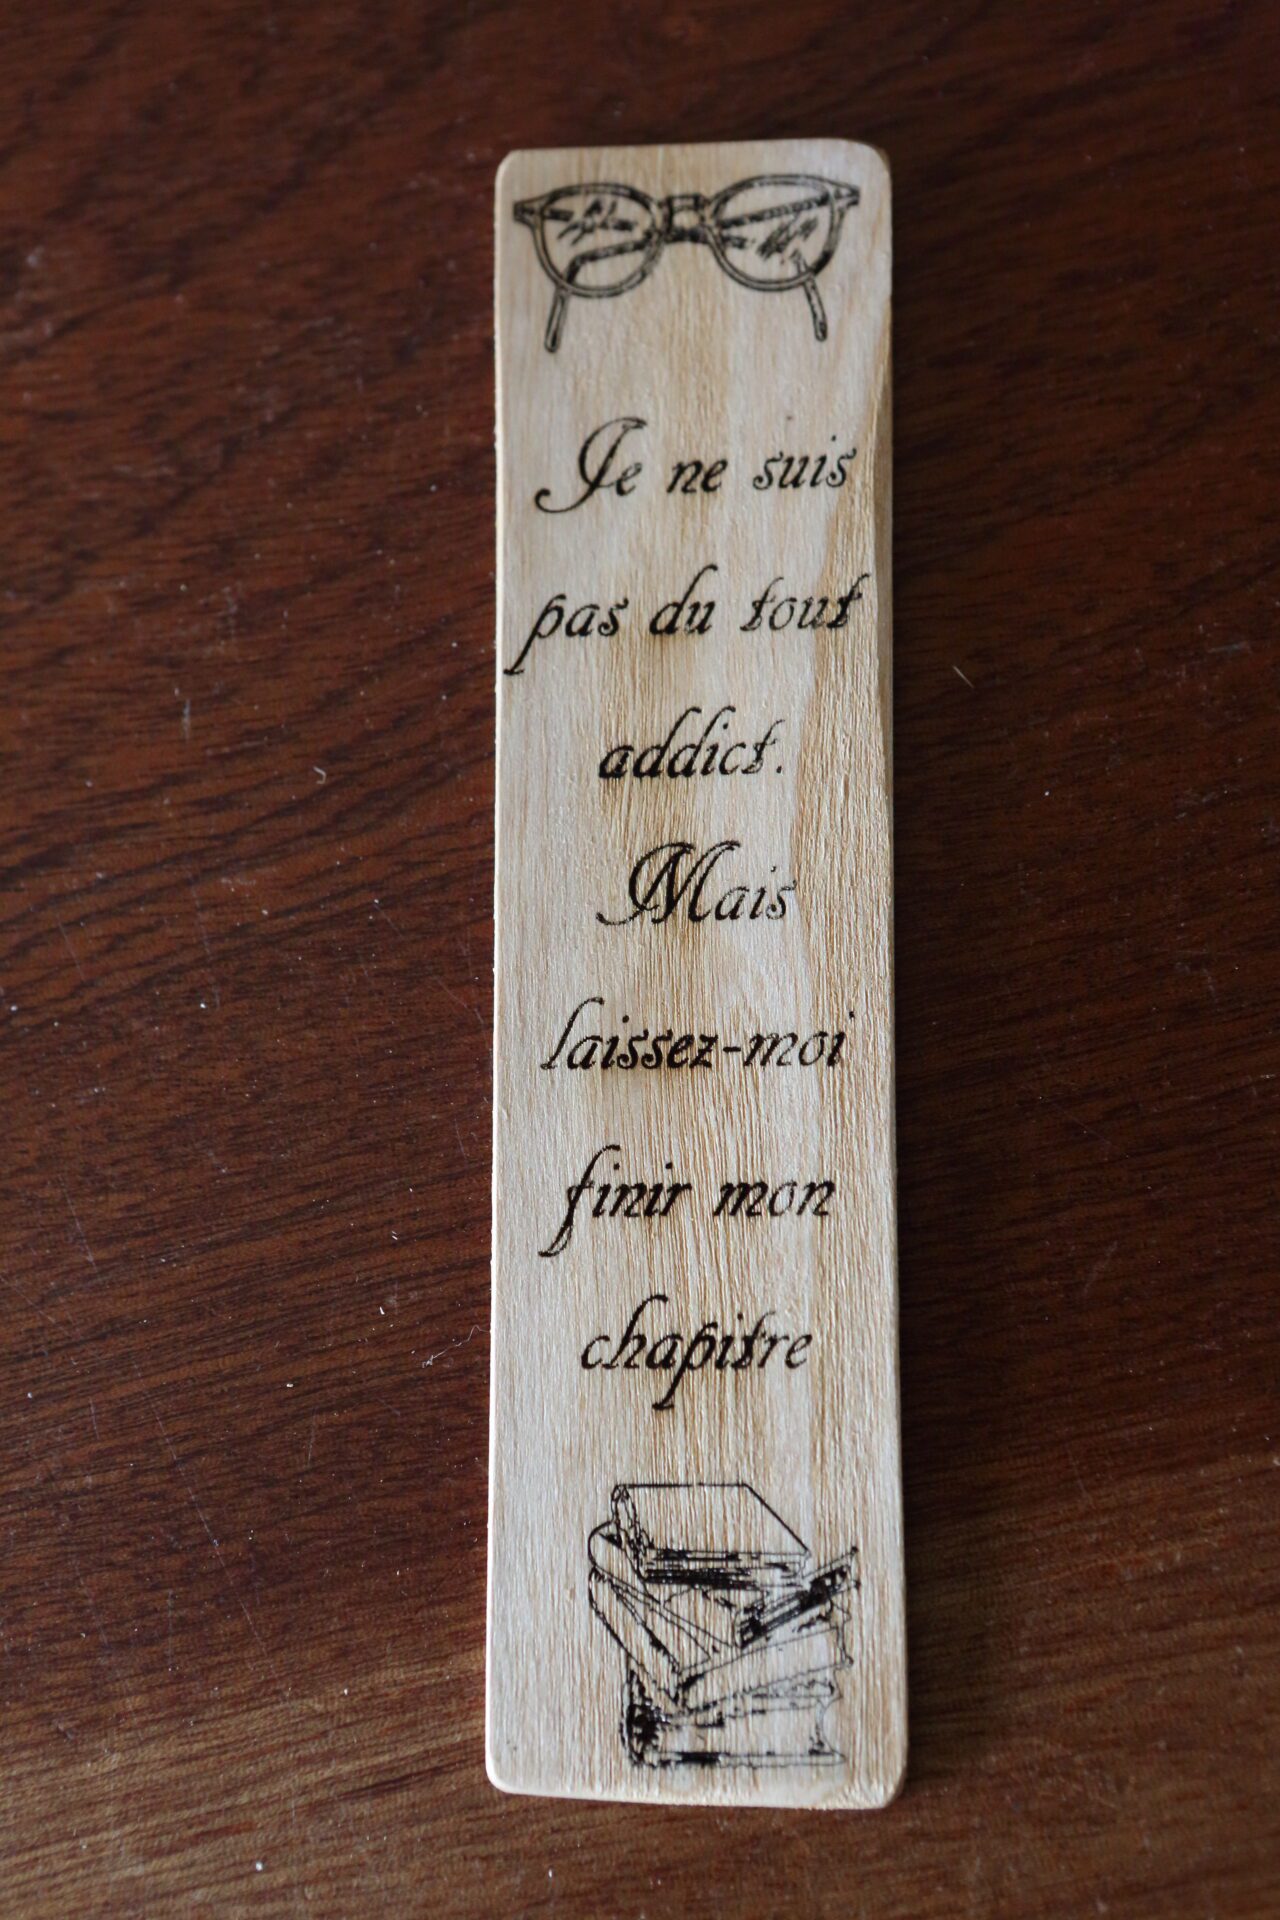 Je ne suis
pas du tout
addict.
Mais
laissez-moi
finir mon
chapitre